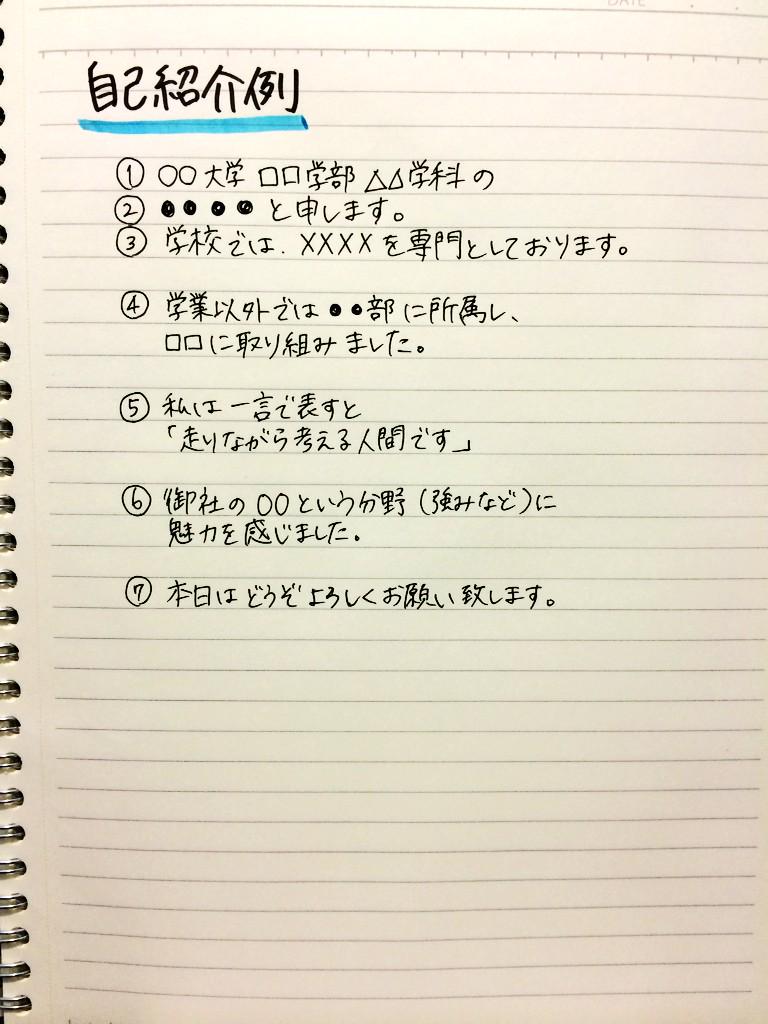 DATE
自己紹介例
① ○○大学 □□学部 △△学科の
② ●●●●と申します。
③ 学校では、XXXXを専門としております。
④ 学業以外では●●部に所属し、
□□に取り組みました。
⑤ 私は一言で表すと
「走りながら考える人間です」
⑥ 御社の○○という分野(強みなど)に
魅力を感じました。
⑦ 本日はどうぞよろしくお願い致します。